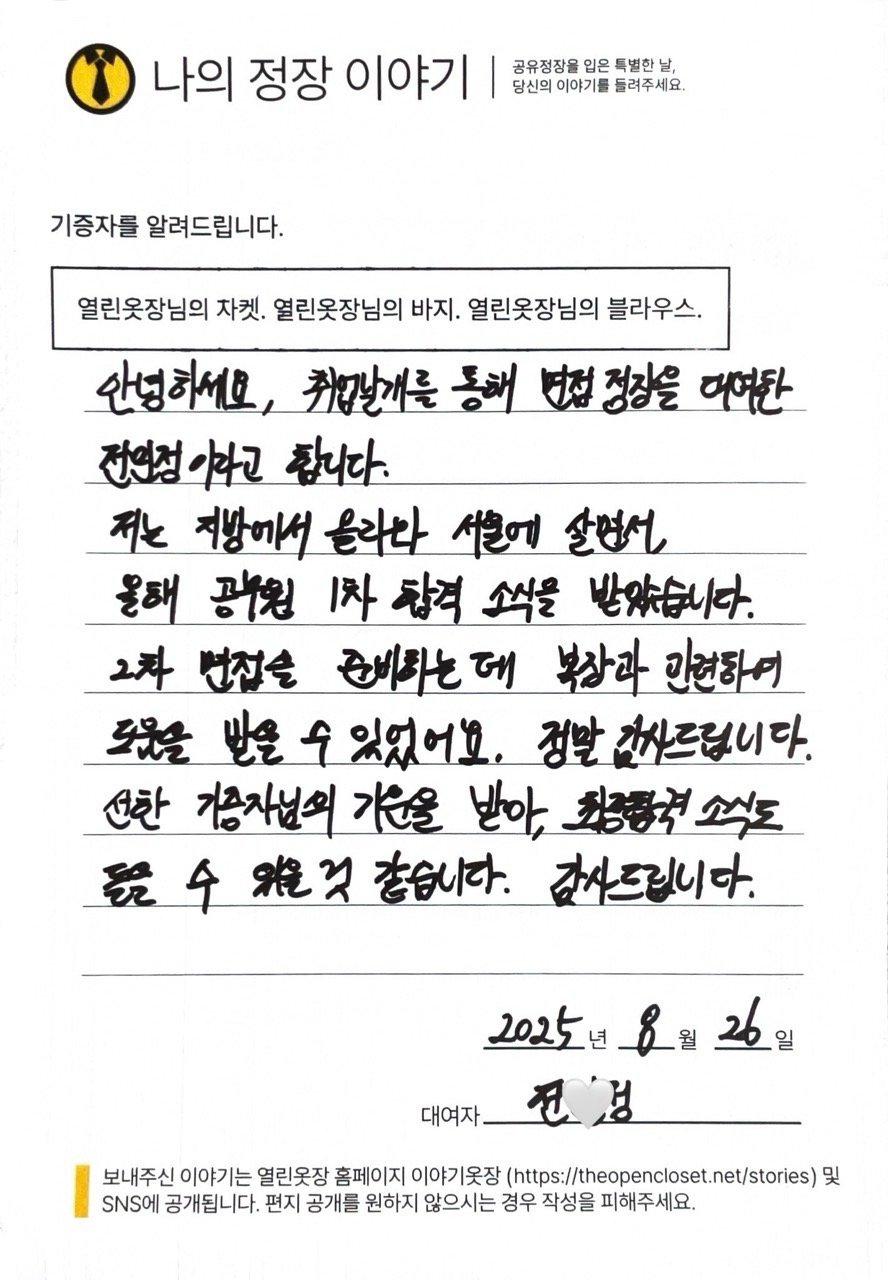 나의 정장 이야기
공유정장을 입은 특별한 날,
당신의 이야기를 들려주세요.
기증자를 알려드립니다.
열린옷장님의 자켓. 열린옷장님의 바지. 열린옷장님의 블라우스.
안녕하세요, 취업날개를 통해 면접 정장을 대여한
전연정이라고 합니다.
저는 지방에서 올라와 서울에 살면서,
올해 공무원 1차 합격 소식을 받았습니다.
2차 면접을 준비하는데 복장과 관련하여
도움을 받을 수 있었어요. 정말 감사드립니다.
선한 기증자님의 기운을 받아, 최종합격 소식도
들을 수 있을 것 같습니다. 감사드립니다.
2025년 8월 26일
대여자 전 정
보내주신 이야기는 열린옷장 홈페이지 이야기옷장 (https://theopencloset.net/stories) 및
SNS에 공개됩니다. 편지 공개를 원하지 않으시는 경우 작성을 피해주세요.